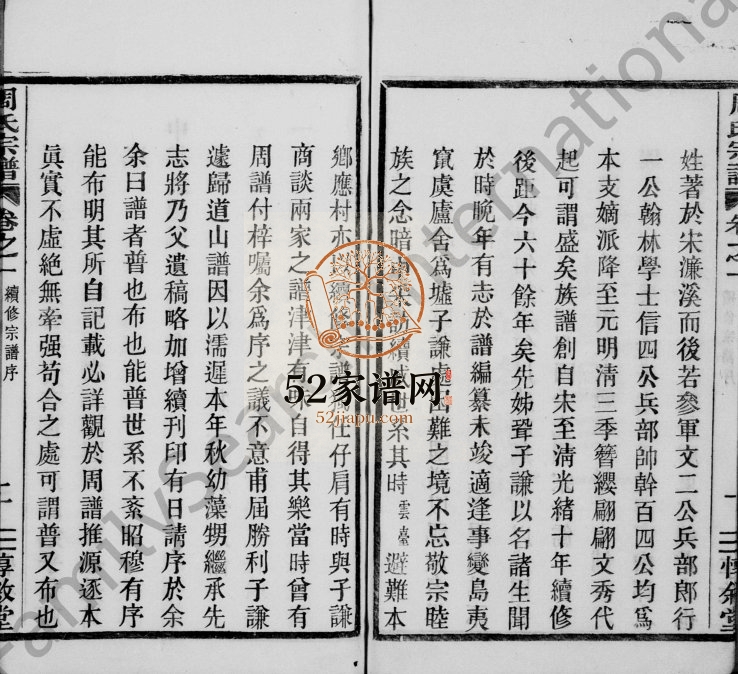 姓著於宋濂溪而後若參軍文二公兵部郎行
一公翰林學士信四公兵部帥幹百四公均爲
本支嫡派降至元明清三季簪纓翩翩文秀代
起可謂盛矣族譜創自宋至清光緒十年續修
後距今六十餘年矣先姊聳子謙以名諸生聞
於時晩年有志於譜編纂未竣適逢事變島夷
竄虞廬舍爲墟子謙處困難之境不忘敬宗睦
族之念暗中采訪續 系其時雲臺避難本
周氏宗譜 卷之一 續修宗譜序 二 惇敘堂
鄉應村亦以續修宗譜 任仔肩有時與子謙
商談兩家之譜津津有味自得其樂當時曾有
周譜付梓囑余爲序之議不意甫屆勝利子謙
遽歸道山譜因以濡遲本年秋幼藻甥繼承先
志將乃父遺稿略加增續刊印有日請序於余
余曰譜者普也布也能普世系不紊昭穆有序
能布明其所自記載必詳觀於周譜推源逐本
眞實不虛絶無牽强苟合之處可謂普又布也
52家谱网
52jiapu.com
FamilySearch International